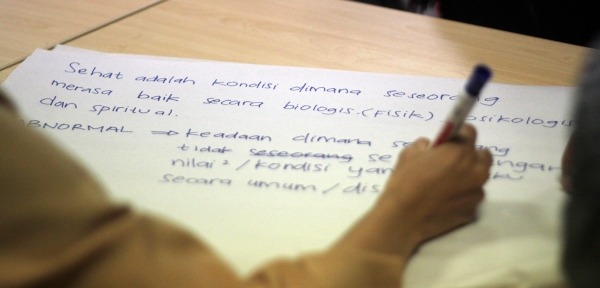 Sehat adalah kondisi dimana seseorang
merasa baik secara biologis.(Fisik) psikologis
dan spiritual.
ABNORMAL ⇒ keadaan dimana
tidak seseorang se
nilai² / kondisi
secara umum /